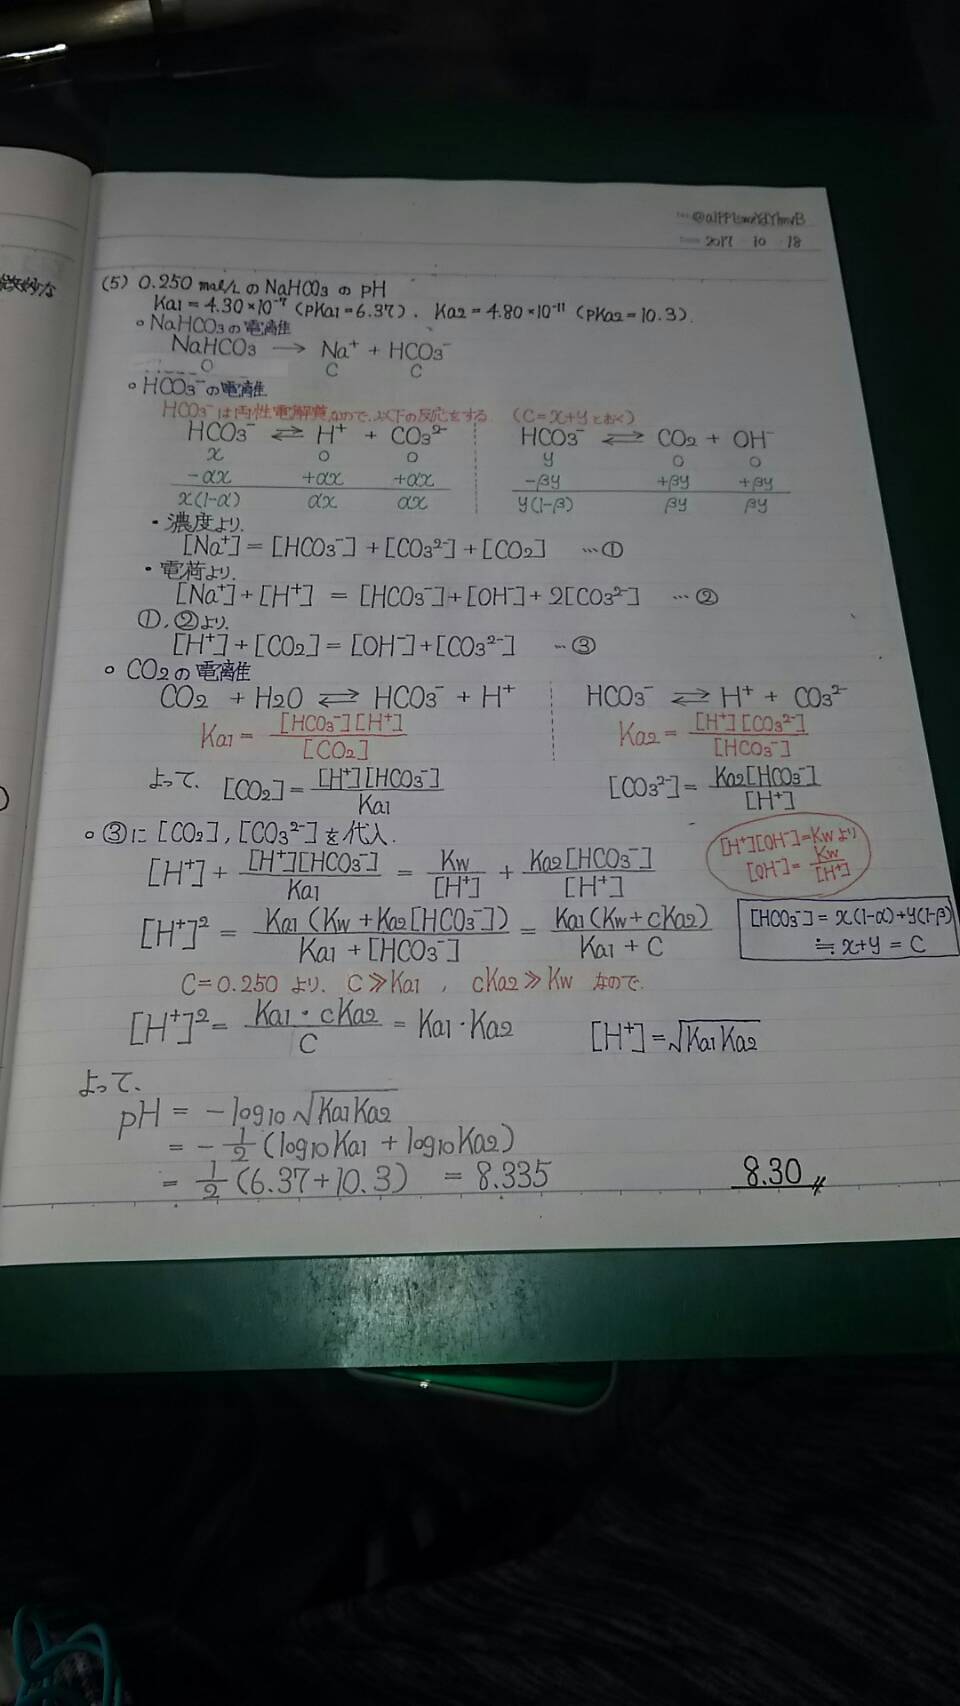 2017 10 18
(5) 0.250 mol/L の NaHCO₃ の pH
Ka1 = 4.30×10⁻⁷ (pKa1=6.37)、Ka2 = 4.80×10⁻¹¹ (pKa2=10.3).
○NaHCO₃の電離
NaHCO₃ → Na⁺ + HCO₃⁻
0 C C
○HCO₃⁻の電離
HCO₃⁻は両性電解質なので、以下の反応をする (C=x+yとおく)
HCO₃⁻ ⇄ H⁺ + CO₃²⁻ HCO₃⁻ ⇄ CO₂ + OH⁻
x 0 0 y 0 0
-αx +αx +αx -βy +βy +βy
x(1-α) αx αx y(1-β) βy βy
・濃度より、
[Na⁺] = [HCO₃⁻] + [CO₃²⁻] + [CO₂] …①
・電荷より、
[Na⁺] + [H⁺] = [HCO₃⁻] + [OH⁻] + 2[CO₃²⁻] …②
①、②より、
[H⁺] + [CO₂] = [OH⁻] + [CO₃²⁻] …③
○ CO₂の電離
CO₂ + H₂O ⇄ HCO₃⁻ + H⁺ HCO₃⁻ ⇄ H⁺ + CO₃²⁻
Ka1 = [HCO₃⁻][H⁺]/[CO₂] Ka2 = [H⁺][CO₃²⁻]/[HCO₃⁻]
よって、[CO₂] = [H⁺][HCO₃⁻]/Ka1 [CO₃²⁻] = Ka2[HCO₃⁻]/[H⁺]
○ ③に [CO₂], [CO₃²⁻] を代入.
[H⁺] + [H⁺][HCO₃⁻]/Ka1 = Kw/[H⁺] + Ka2[HCO₃⁻]/[H⁺]
[H⁺][OH⁻]=Kwより
[OH⁻] = Kw/[H⁺]
[H⁺]² = Ka1(Kw+Ka2[HCO₃⁻])/(Ka1+[HCO₃⁻]) = Ka1(Kw+cKa2)/(Ka1+C)
[HCO₃⁻] = x(1-α)+y(1-β)
≒ x+y = C
C=0.250 より、C≫Ka1 , cKa2≫Kw なので、
[H⁺]² = Ka1・cKa2/C = Ka1・Ka2 [H⁺] = √Ka1Ka2
よって、
pH = -log10√Ka1Ka2
= -1/2 (log10Ka1 + log10Ka2)
= 1/2 (6.37+10.3) = 8.335 8.30